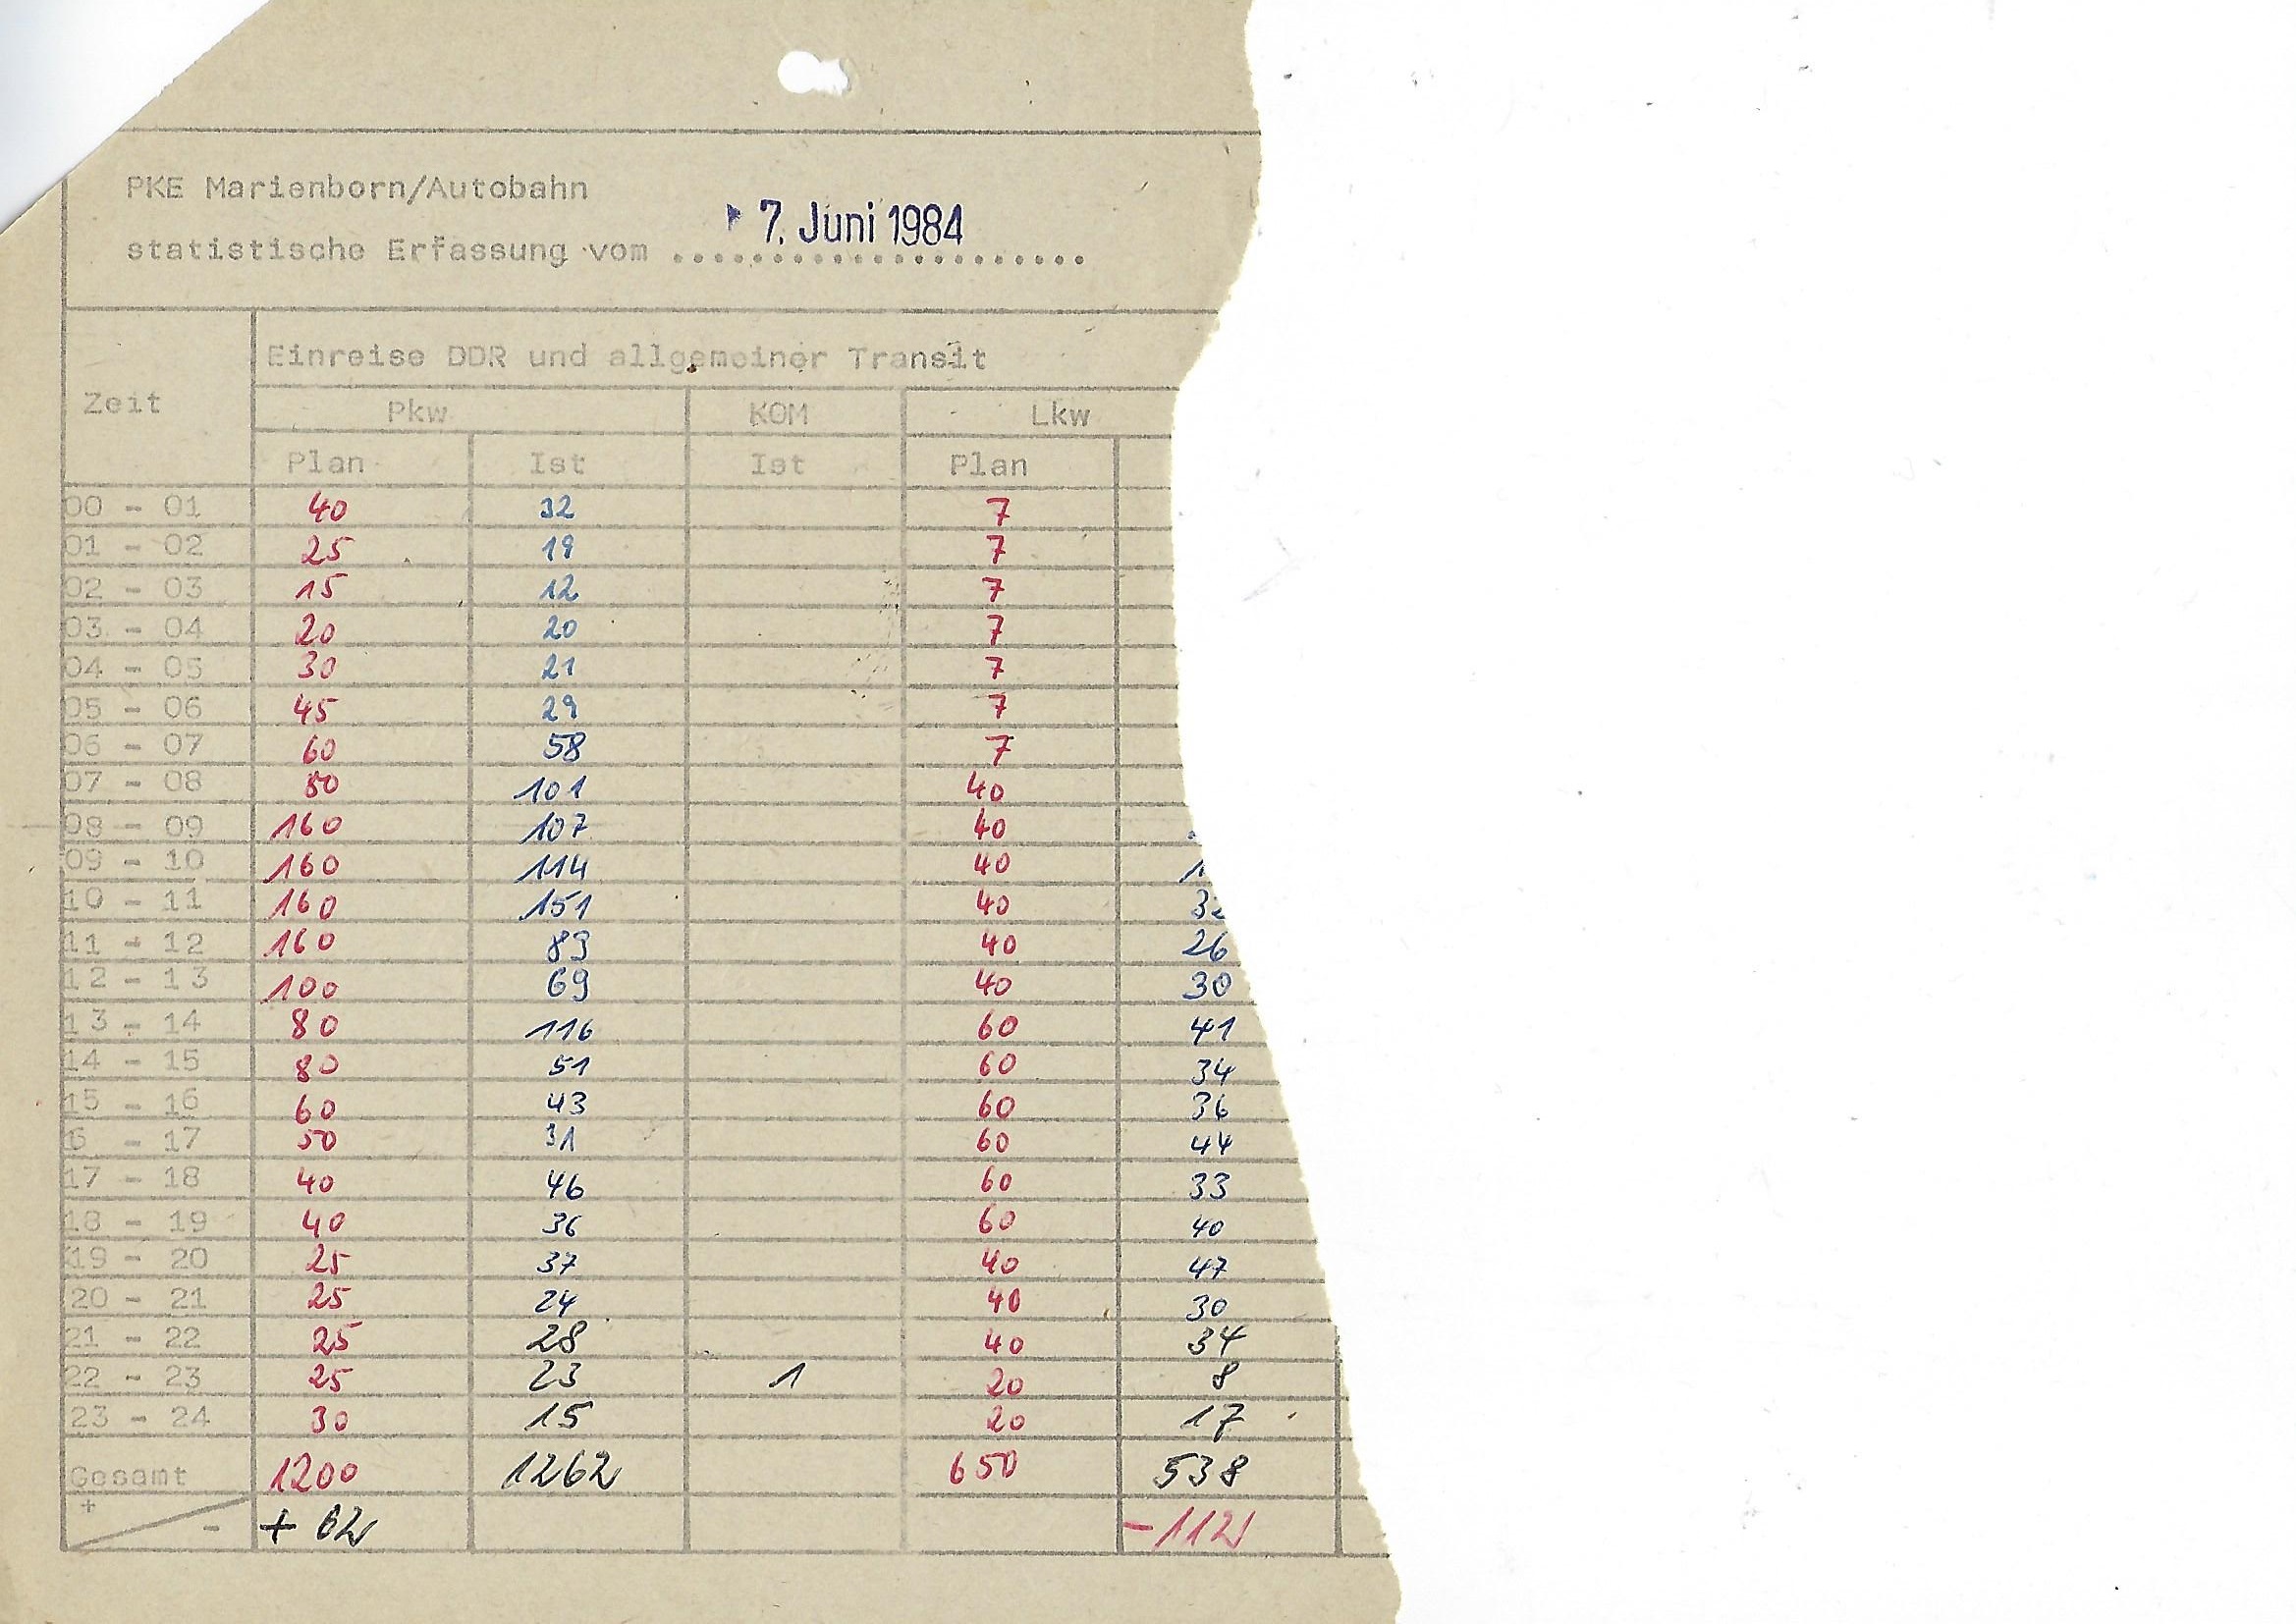 PKE Marienborn/Autobahn
7. Juni 1984
statistische Erfassung vom .....................
Zeit
Einreise DDR und allgemeiner Transit
Pkw KOM Lkw
Plan Ist Ist Plan
00 - 01 40 32 7
01 - 02 25 19 7
02 - 03 15 12 7
03 - 04 20 20 7
04 - 05 30 21 7
05 - 06 45 29 7
06 - 07 60 58 7
07 - 08 80 101 40
08 - 09 160 107 40
09 - 10 160 114 40
10 - 11 160 151 40
11 - 12 160 83 40 26
12 - 13 100 69 40 30
13 - 14 80 116 60 41
14 - 15 80 51 60 34
15 - 16 60 43 60 36
6 - 17 50 31 60 44
17 - 18 40 46 60 33
18 - 19 40 36 60 40
19 - 20 25 37 40 47
20 - 21 25 24 40 30
21 - 22 25 28 40 34
22 - 23 25 23 1 20 8
23 - 24 30 15 20 17
Gesamt 1200 1262 650 538
+ - + 62 - 112